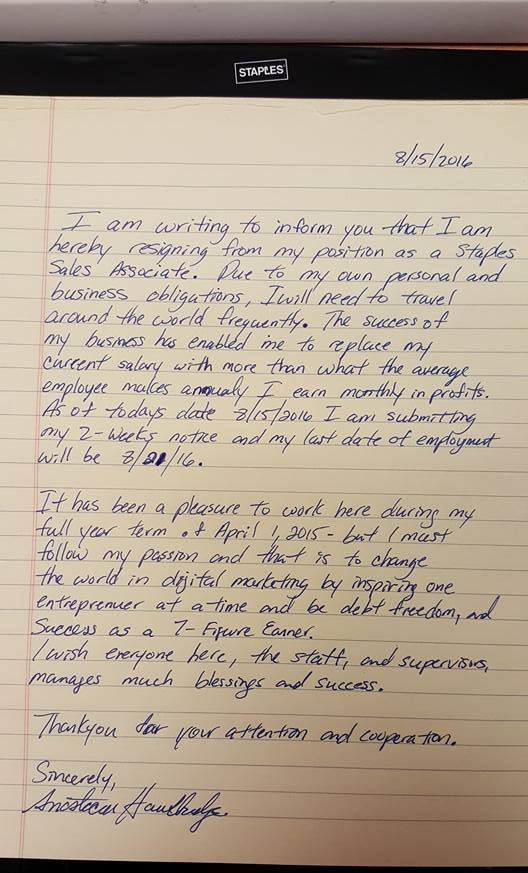 STAPLES
8/15/2016
I am writing to inform you that I am
hereby resigning from my position as a Staples
Sales Associate. Due to my own personal and
business obligations, I will need to travel
around the world frequently. The success of
my business has enabled me to replace my
current salary with more than what the average
employee makes annualy I earn monthly in profits.
As of todays date 8/15/2016 I am submitting
my 2-weeks notice and my last date of employment
will be 8/21/16.
It has been a pleasure to work here during my
full year term of April 1, 2015 - but I must
follow my passion and that is to change
the world in digital marketing by inspiring one
entreprenuer at a time and be debt freedom, and
Success as a 7-Figure Earner.
I wish everyone here, the staff, and supervisors,
manages much blessings and success.
Thankyou for your attention and cooperation.
Sincerely,